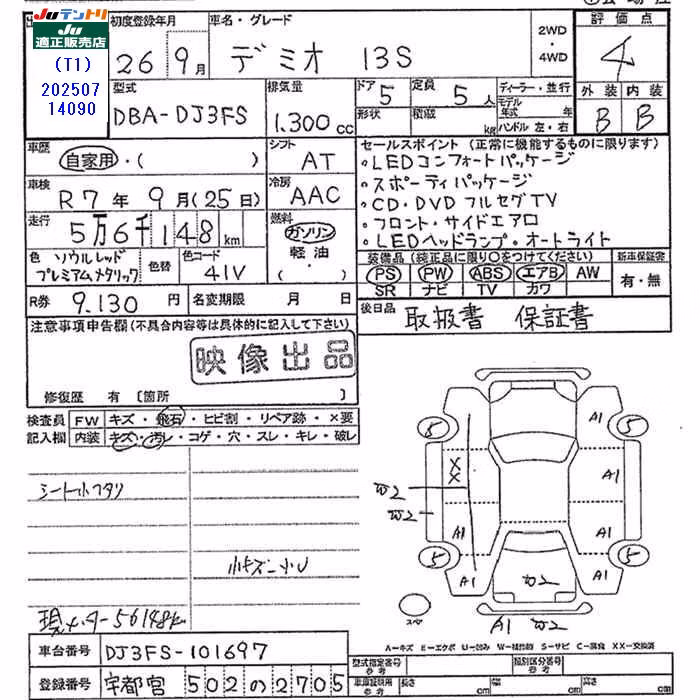 JUテントリ
JU適正販売店
(T1)
202507
14090
初度登録年月
26 9月
車名・グレード
デミオ 13S
2WD
・
4WD
評価点
4
型式
DBA-DJ3FS
排気量
1.300 cc
ドア
5
形状
定員
5人
積載
kg
ディーラー・並行
モデル年式 年
ハンドル 左・右
外装 内装
B B
車歴
自家用・( )
シフト
AT
車検
R7年9月(25日)
冷房
AAC
走行
5万6千148km
燃料
ガソリン
軽油
・( )
色 ソウルレッド
プレミアムメタリック
色替
色コード
41V
R券 9.130円
名変期限 月 日
セールスポイント(正常に機能するものに限ります)
・LEDコンフォートパッケージ
・スポーティパッケージ
・CD・DVDフルセグTV
・フロント・サイドエアロ
・LEDヘッドランプ・オートライト
装備品(純正品に限り○をつけてください)
PS PW ABS エアB AW
SR ナビ TV カワ
新車保証書
有・無
後日品
取扱書 保証書
注意事項申告欄(不具合内容等は具体的に記入して下さい)
映像出品
修復歴 有〔箇所 〕
検査員
記入欄
FW キズ・飛石・ヒビ割・リペア跡・×要
内装 キズ・汚レ・コゲ・穴・スレ・キレ・破レ
小キズ小U
現メーター56148k
車台番号 DJ3FS-101697
登録番号 宇都宮502の2705
A1
5 5
X
X
A1
ワ2
ワ2
A1 A1
5 5
A1 ワ2 A1
スペア
A1 ワ2
A-キズ E-エクボ U-凹み W-補修跡 S-サビ C-腐食 XX-交換済
型式指定番号
参考
類別区分番号
車庫証明用
参考
長さ cm 幅 cm 高さ cm